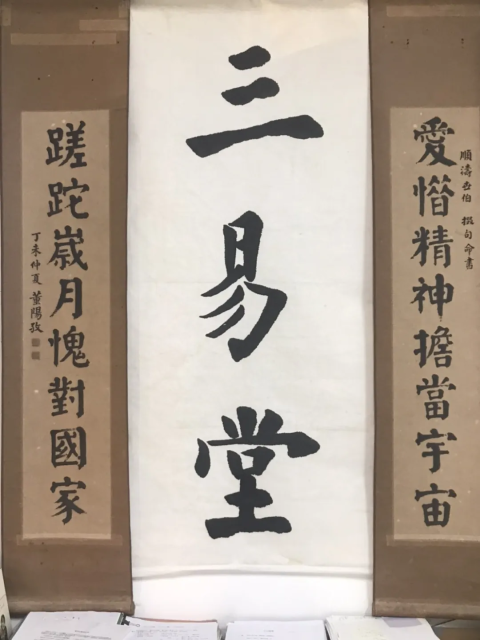 愛惜精神擔當宇宙
順濤世伯 撰句命書
三易堂
蹉跎歲月愧對國家
丁未仲夏 董陽孜